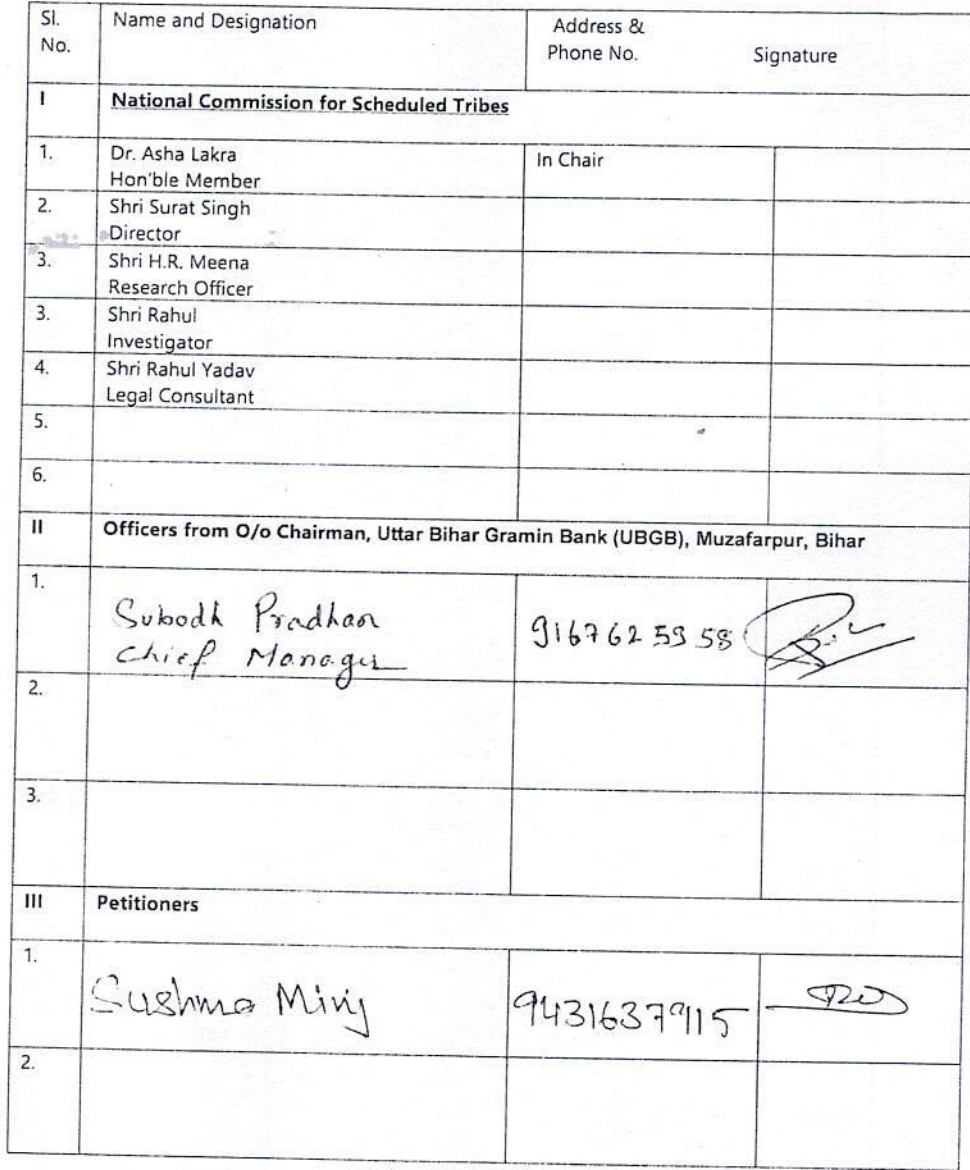 Sl. Name and Designation Address &
No. Phone No. Signature
I National Commission for Scheduled Tribes
1. Dr. Asha Lakra In Chair
Hon'ble Member
2. Shri Surat Singh
Director
3. Shri H.R. Meena
Research Officer
3. Shri Rahul
Investigator
4. Shri Rahul Yadav
Legal Consultant
5.
6.
II Officers from O/o Chairman, Uttar Bihar Gramin Bank (UBGB), Muzafarpur, Bihar
1.
Subodh Pradhan 9167625958
Chief Manager
2.
3.
III Petitioners
1.
Sushma Minj 9431637915
2.